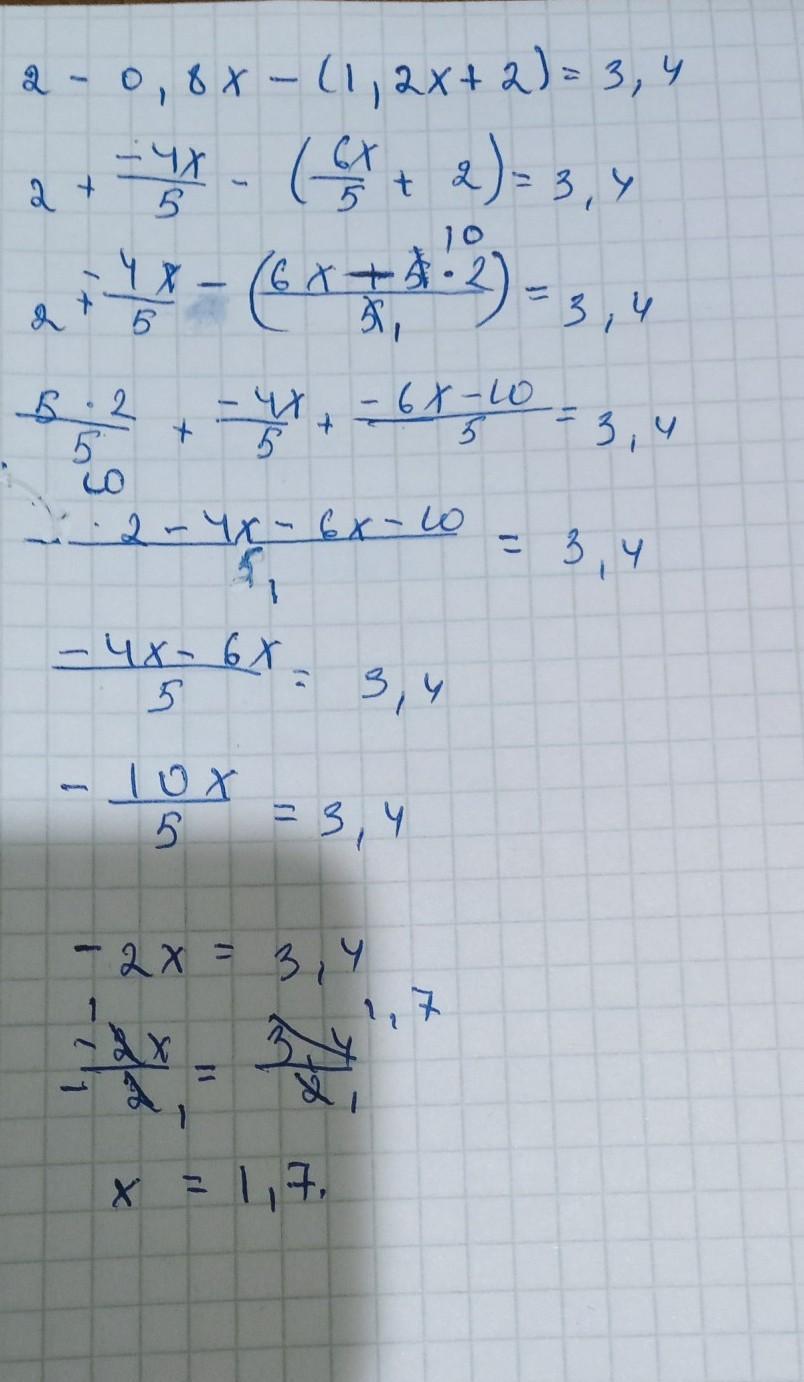 2 - 0,8x - (1,2x + 2) = 3,4
2 + -4x/5 - (6x/5 + 2) = 3,4
10
2 + -4x/5 - (6x + 5 · 2 / 5 1) = 3,4
5 · 2/5 + -4x/5 + -6x - 10/5 = 3,4
10
· 2 - 4x - 6x - 10 / 5 1 = 3,4
-4x - 6x / 5 = 3,4
- 10x/5 = 3,4
-2x = 3,4
1 1,7
- -2x/2 1 = 3,4/2 1
x = 1,7.